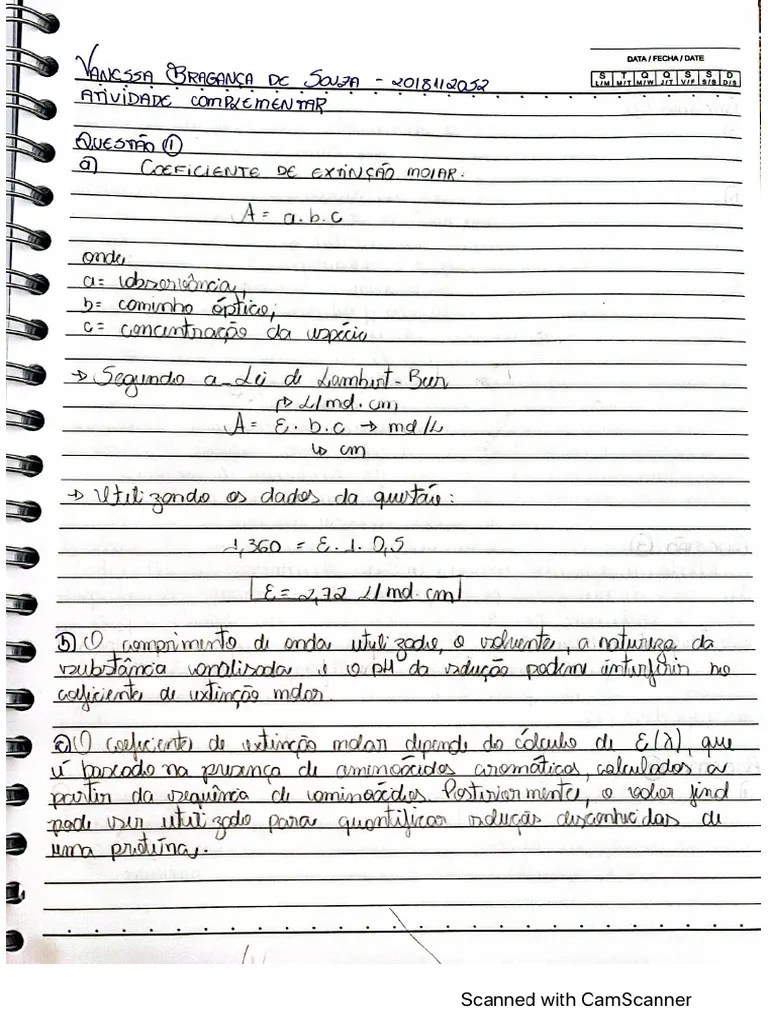 DATA / FECHA / DATE
S T Q Q S S D
L/M M/T M/W J/T V/F S/S D/S
VANESSA BRAGANÇA DE SOUZA - 2018112052
ATIVIDADE COMPLEMENTAR
QUESTÃO ①
a) COEFICIENTE DE EXTINÇÃO MOLAR:
A = a.b.c
onde,
a = absorvância,
b = caminho óptico;
c = concentração da espécie
→ Segundo a Lei de Lambert-Beer
↱ L/mol.cm
A = ε. b.c → mol/L
↳ cm
→ Utilizando os dados da questão:
1,360 = ε. 1. 0,5
ε = 2,72 L/mol.cm
b) O comprimento de onda utilizado, o solvente, a natureza da
substância analisada e o pH da solução podem interferir no
coeficiente de extinção molar.
c) O coeficiente de extinção molar depende do cálculo de ε(λ), que
é baseado na presença de aminoácidos aromáticos, calculados a
partir da sequência de aminoácidos. Posteriormente, o valor final
pode ser utilizado para quantificar solução desconhecidas de
uma proteína.
Scanned with CamScanner